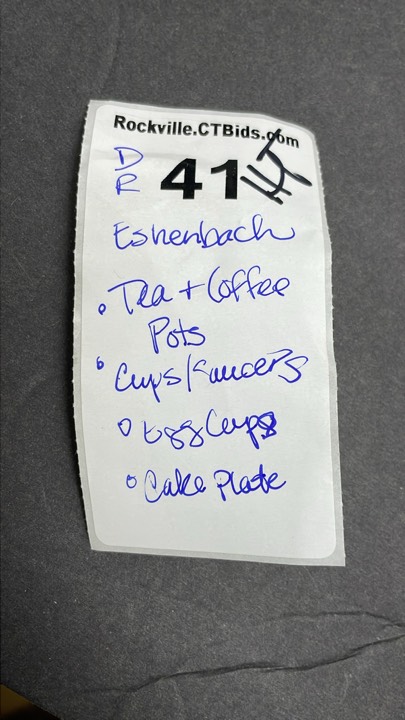 Rockville.CTBids.com
D
R 41 HT
Eshenbach
• Tea + Coffee
Pots
• Cups/Saucers
• Egg Cups
• Cake Plate